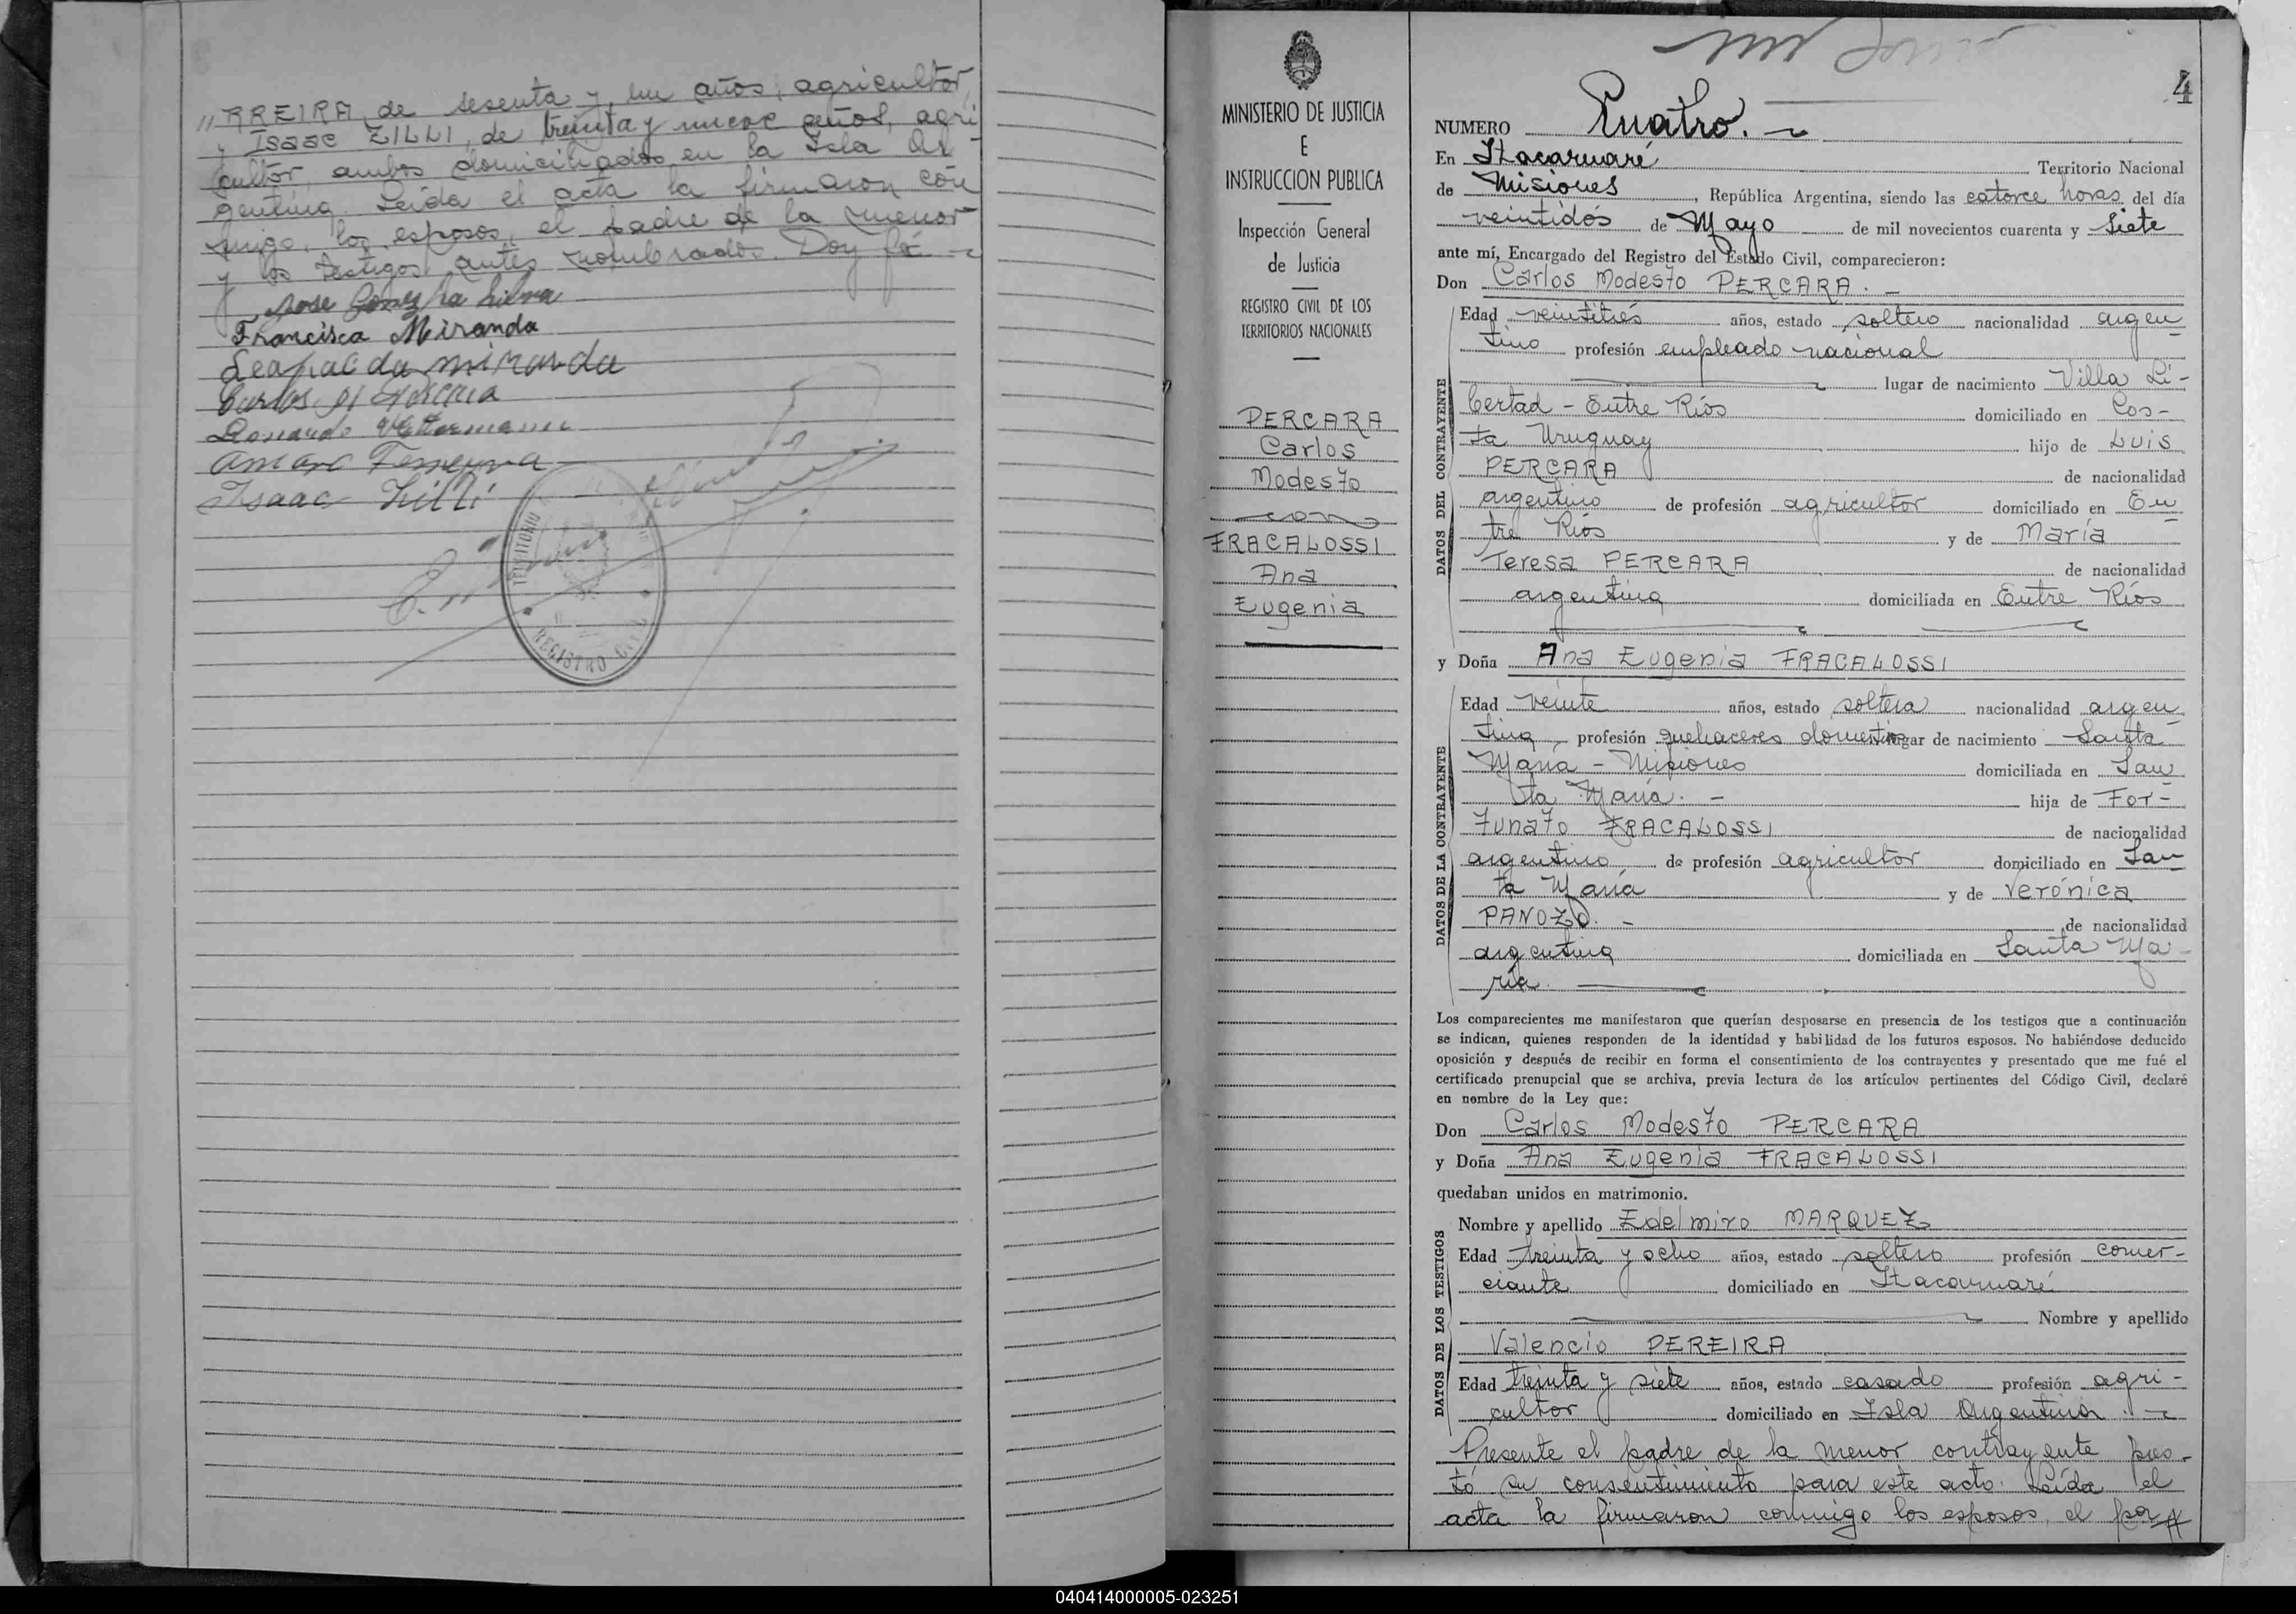 "RREIRA, de sesenta y un años, agricultor,
y Isaac ZILLI, de treinta y nueve años, agri
cultor, ambos domiciliados en la Isla Ar-
gentina. Leída el acta la firmaron con
migo, los esposos, el padre de la menor
y los testigos antes nombrados. Doy fé.
Francisca Miranda
miranda
Carlos
Leonardo
Amaro Ferreyra
Isaac Zilli
TERRITORIO
REGISTRO CIVIL
MINISTERIO DE JUSTICIA
E
INSTRUCCION PUBLICA
Inspección General
de Justicia
REGISTRO CIVIL DE LOS
TERRITORIOS NACIONALES
PERCARA
Carlos
Modesto
con
FRACALOSSI
Ana
Eugenia
4
NUMERO Cuatro.
En Itacaruaré Territorio Nacional
de Misiones, República Argentina, siendo las catorce horas del día
veintidós de Mayo de mil novecientos cuarenta y siete
ante mí, Encargado del Registro del Estado Civil, comparecieron:
Don Carlos Modesto PERCARA. -
DATOS DEL CONTRAYENTE
Edad veintitrés años, estado soltero nacionalidad argen
tino profesión empleado nacional
lugar de nacimiento Villa Li-
bertad - Entre Ríos domiciliado en Cos-
ta Uruguay hijo de Luis
PERCARA de nacionalidad
argentino de profesión agricultor domiciliado en En
tre Ríos y de María
Teresa PERCARA de nacionalidad
argentina domiciliada en Entre Ríos
y Doña Ana Eugenia FRACALOSSI
DATOS DE LA CONTRAYENTE
Edad veinte años, estado soltera nacionalidad argen
tina profesión quehaceres domésticos lugar de nacimiento Santa
María - Misiones domiciliada en San
ta María. - hija de For-
tunato FRACALOSSI de nacionalidad
argentino de profesión agricultor domiciliado en San
ta María y de Verónica
PANOZO. - de nacionalidad
argentina domiciliada en Santa Ma-
ría.
Los comparecientes me manifestaron que querían desposarse en presencia de los testigos que a continuación
se indican, quienes responden de la identidad y habilidad de los futuros esposos. No habiéndose deducido
oposición y después de recibir en forma el consentimiento de los contrayentes y presentado que me fué el
certificado prenupcial que se archiva, previa lectura de los artículos pertinentes del Código Civil, declaré
en nombre de la Ley que:
Don Carlos Modesto PERCARA
y Doña Ana Eugenia FRACALOSSI
quedaban unidos en matrimonio.
DATOS DE LOS TESTIGOS
Nombre y apellido Edelmiro MARQUEZ
Edad treinta y ocho años, estado soltero profesión comer-
ciante domiciliado en Itacaruaré
Nombre y apellido
Valencio PEREIRA
Edad treinta y siete años, estado casado profesión agri-
cultor domiciliado en Isla Argentina. -
Presente el padre de la menor contrayente pres-
tó su consentimiento para este acto. Leída el
acta la firmaron conmigo los esposos, el pa
040414000005-023251